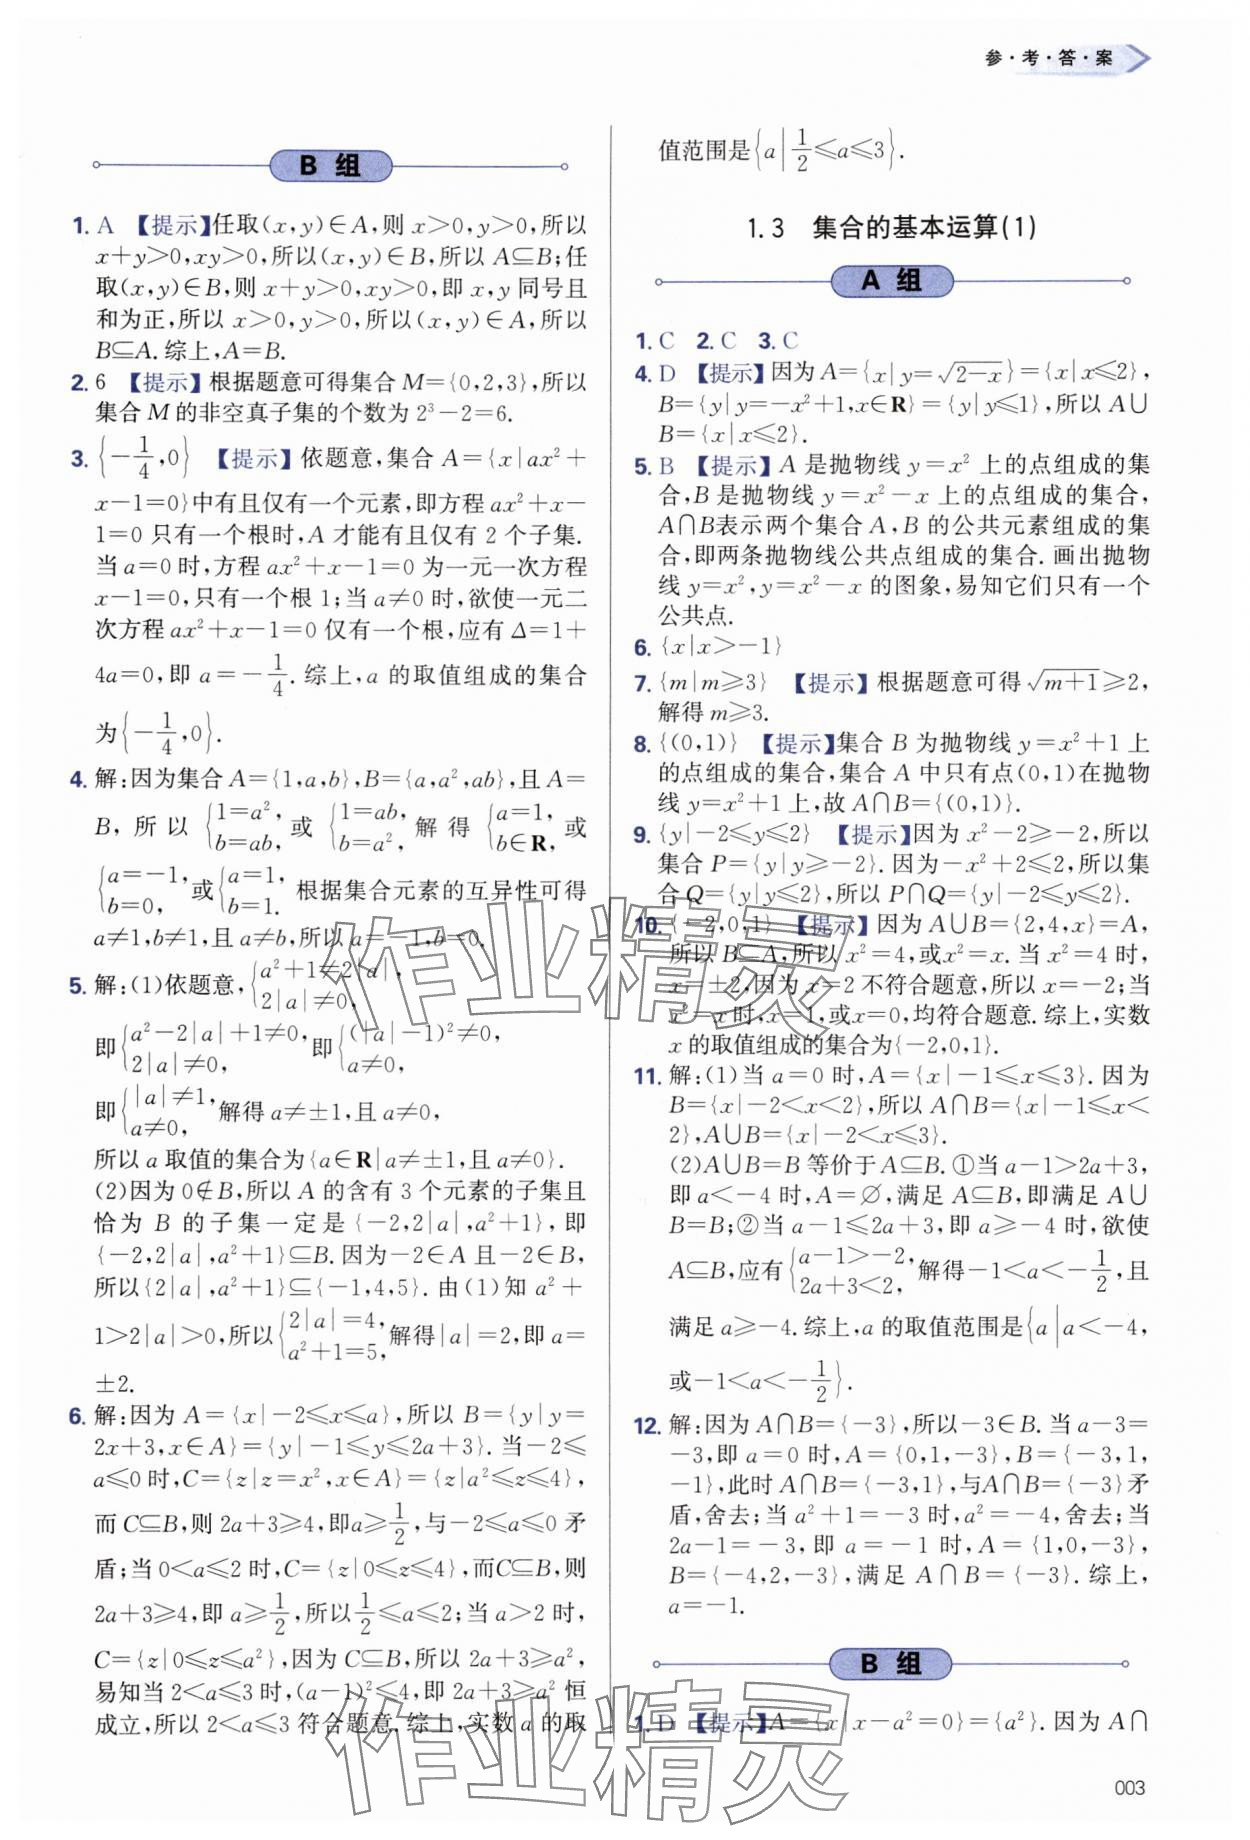 参·考·答·案
B 组
1. A 【提示】任取(x,y)∈A,则 x>0,y>0,所以
x+y>0,xy>0,所以(x,y)∈B,所以 A⊆B;任
取(x,y)∈B,则 x+y>0,xy>0,即 x,y 同号且
和为正,所以 x>0,y>0,所以(x,y)∈A,所以
B⊆A.综上,A=B.
2. 6 【提示】根据题意可得集合 M={0,2,3},所以
集合 M 的非空真子集的个数为 2³-2=6.
3. {-1/4,0} 【提示】依题意,集合 A={x|ax²+
x-1=0}中有且仅有一个元素,即方程 ax²+x-
1=0 只有一个根时,A 才能有且仅有 2 个子集.
当 a=0 时,方程 ax²+x-1=0 为一元一次方程
x-1=0,只有一个根 1;当 a≠0 时,欲使一元二
次方程 ax²+x-1=0 仅有一个根,应有 Δ=1+
4a=0,即 a=-1/4.综上,a 的取值组成的集合
为{-1/4,0}.
4. 解:因为集合 A={1,a,b},B={a,a²,ab},且 A=
B,所以 {1=a², b=ab, 或 {1=ab, b=a², 解得 {a=1, b∈R, 或
{a=-1, b=0, 或{a=1, b=1. 根据集合元素的互异性可得
a≠1,b≠1,且 a≠b,所以 a=-1,b=0.
5. 解:(1)依题意,{a²+1≠2|a|, 2|a|≠0,
即{a²-2|a|+1≠0, 2|a|≠0, 即{(|a|-1)²≠0, a≠0,
即{|a|≠1, a≠0, 解得 a≠±1,且 a≠0,
所以 a 取值的集合为{a∈R|a≠±1,且 a≠0}.
(2)因为 0∉B,所以 A 的含有 3 个元素的子集且
恰为 B 的子集一定是{-2,2|a|,a²+1},即
{-2,2|a|,a²+1}⊆B.因为-2∈A 且-2∈B,
所以{2|a|,a²+1}⊆{-1,4,5}.由(1)知 a²+
1>2|a|>0,所以{2|a|=4, a²+1=5, 解得|a|=2,即 a=
±2.
6. 解:因为 A={x|-2≤x≤a},所以 B={y|y=
2x+3,x∈A}={y|-1≤y≤2a+3}.当-2≤
a≤0 时,C={z|z=x²,x∈A}={z|a²≤z≤4},
而 C⊆B,则 2a+3≥4,即a≥1/2,与-2≤a≤0 矛
盾;当 0<a≤2 时,C={z|0≤z≤4},而C⊆B,则
2a+3≥4,即 a≥1/2,所以1/2≤a≤2;当 a>2 时,
C={z|0≤z≤a²},因为 C⊆B,所以 2a+3≥a²,
易知当 2<a≤3 时,(a-1)²≤4,即 2a+3≥a² 恒
成立,所以 2<a≤3 符合题意.综上,实数 a 的取
值范围是{a|1/2≤a≤3}.
1.3 集合的基本运算(1)
A 组
1. C 2. C 3. C
4. D 【提示】因为 A={x|y=√(2-x)}={x|x≤2},
B={y|y=-x²+1,x∈R}={y|y≤1},所以 A∪
B={x|x≤2}.
5. B 【提示】A 是抛物线 y=x² 上的点组成的集
合,B 是抛物线 y=x²-x 上的点组成的集合,
A∩B表示两个集合 A,B 的公共元素组成的集
合,即两条抛物线公共点组成的集合.画出抛物
线 y=x²,y=x²-x 的图象,易知它们只有一个
公共点.
6. {x|x>-1}
7. {m|m≥3} 【提示】根据题意可得√(m+1)≥2,
解得 m≥3.
8. {(0,1)} 【提示】集合 B 为抛物线 y=x²+1 上
的点组成的集合,集合 A 中只有点(0,1)在抛物
线 y=x²+1 上,故 A∩B={(0,1)}.
9. {y|-2≤y≤2} 【提示】因为 x²-2≥-2,所以
集合 P={y|y≥-2}.因为-x²+2≤2,所以集
合 Q={y|y≤2},所以 P∩Q={y|-2≤y≤2}.
10. {-2,0,1} 【提示】因为 A∪B={2,4,x}=A,
所以 B⊆A,所以 x²=4,或x²=x.当 x²=4 时,
x=±2,因为 x=2 不符合题意,所以 x=-2;当
x²=x 时,x=1,或x=0,均符合题意.综上,实数
x 的取值组成的集合为{-2,0,1}.
11. 解:(1)当 a=0 时,A={x|-1≤x≤3}.因为
B={x|-2<x<2},所以 A∩B={x|-1≤x<
2},A∪B={x|-2<x≤3}.
(2)A∪B=B 等价于 A⊆B.①当 a-1>2a+3,
即 a<-4 时,A=∅,满足 A⊆B,即满足 A∪
B=B;②当 a-1≤2a+3,即 a≥-4 时,欲使
A⊆B,应有{a-1>-2, 2a+3<2, 解得-1<a<-1/2,且
满足 a≥-4.综上,a 的取值范围是{a|a<-4,
或-1<a<-1/2}.
12. 解:因为 A∩B={-3},所以-3∈B.当 a-3=
-3,即 a=0 时,A={0,1,-3},B={-3,1,
-1},此时 A∩B={-3,1},与A∩B={-3}矛
盾,舍去;当 a²+1=-3 时,a²=-4,舍去;当
2a-1=-3,即 a=-1 时,A={1,0,-3},
B={-4,2,-3},满足 A∩B={-3}.综上,
a=-1.
B 组
1. D 【提示】A={x|x-a²=0}={a²}.因为 A∩
003
作业精灵
作业精灵